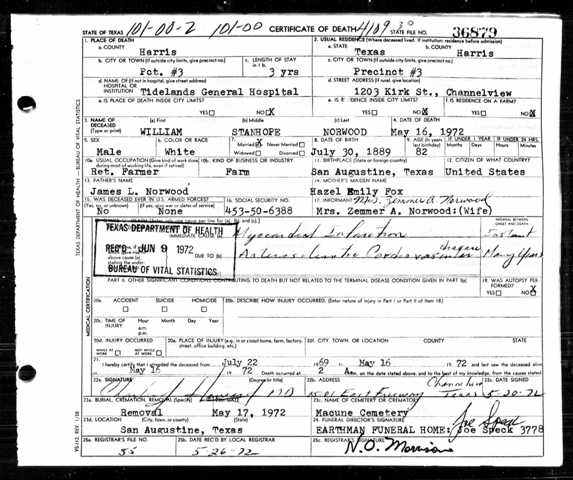 STATE OF TEXAS 101-00-2 101-00 CERTIFICATE OF DEATH 4109 STATE FILE NO. 36879
1. PLACE OF DEATH 2. USUAL RESIDENCE (Where deceased lived. If institution: residence before admission)
a. COUNTY a. STATE b. COUNTY
Harris Texas Harris
b. CITY OR TOWN (If outside city limits, give precinct no.) c. LENGTH OF STAY in 1 b. c. CITY OR TOWN (If outside city limits, give precinct no.)
Pct. #3 3 yrs Precinct #3
d. NAME OF (If not in hospital, give street address) HOSPITAL OR INSTITUTION d. STREET ADDRESS (If rural, give location)
Tidelands General Hospital 1203 Kirk St., Channelview
e. IS PLACE OF DEATH INSIDE CITY LIMITS? e. IS RESIDENCE INSIDE CITY LIMITS? f. IS RESIDENCE ON A FARM?
YES NO X YES NO X YES NO X
3. NAME OF DECEASED (Type or print) (a) First (b) Middle (c) Last 4. DATE OF DEATH
WILLIAM STANHOPE NORWOOD May 16, 1972
5. SEX 6. COLOR OR RACE 7. Married X Never Married Widowed Divorced 8. DATE OF BIRTH 9. AGE (In years last birthday) IF UNDER 1 YEAR Months Days IF UNDER 24 HRS. Hours Min.
Male White July 30, 1889 82
10a. USUAL OCCUPATION (Give kind of work done during most of working life, even if retired) 10b. KIND OF BUSINESS OR INDUSTRY 11. BIRTHPLACE (State or foreign country) 12. CITIZEN OF WHAT COUNTRY?
Ret. Farmer Farm San Augustine, Texas United States
13. FATHER'S NAME 14. MOTHER'S MAIDEN NAME
James L. Norwood Hazel Emily Fox
15. WAS DECEASED EVER IN U.S. ARMED FORCES? (Yes, no, or unknown) (If yes, give war or dates of service) 16. SOCIAL SECURITY NO. 17. INFORMANT Mrs. Zemmer A. Norwood
No None 453-50-6388 Mrs. Zemmer A. Norwood: (Wife)
TEXAS DEPARTMENT OF HEALTH
REC'D JUN 9 1972
BUREAU OF VITAL STATISTICS
INTERVAL BETWEEN ONSET AND DEATH
Myocardial Infarction Instant
Arteriosclerotic Cardiovascular disease Many Years
PART II. OTHER SIGNIFICANT CONDITIONS CONTRIBUTING TO DEATH BUT NOT RELATED TO THE TERMINAL DISEASE CONDITION GIVEN IN PART I(a) 19. WAS AUTOPSY PERFORMED?
YES NO X
20a. ACCIDENT SUICIDE HOMICIDE 20b. DESCRIBE HOW INJURY OCCURRED. (Enter nature of injury in Part I or Part II of item 18.)
20c. TIME OF INJURY Hour Month Day Year
a.m.
p.m.
20d. INJURY OCCURRED WHILE AT WORK NOT WHILE AT WORK 20e. PLACE OF INJURY (e.g., in or about home, farm, factory, street, office building, etc.) 20f. CITY, TOWN, OR LOCATION COUNTY STATE
21. I hereby certify that I attended the deceased from July 22 1969 to May 16 1972 and last saw the deceased alive
on May 16 1972 Death occurred at 2 A m. on the date stated above, and to the best of my knowledge, from the causes stated
22a. SIGNATURE (Degree or title) 22b. ADDRESS 22c. DATE SIGNED
East Freeway Channelview Texas 5-20-72
23a. BURIAL, CREMATION, REMOVAL (Specify) 23b. DATE 23c. NAME OF CEMETERY OR CREMATORY
Removal May 17, 1972 Macune Cemetery
23d. LOCATION (City, town, or county) (State) 24. FUNERAL DIRECTOR'S SIGNATURE Joe Speck
San Augustine, Texas EARTHMAN FUNERAL HOME: Joe Speck 3778
25a. REGISTRAR'S FILE NO. 25b. DATE REC'D BY LOCAL REGISTRAR 25c. REGISTRAR'S SIGNATURE
55 5-26-72 N.O. Morrison
MEDICAL CERTIFICATION